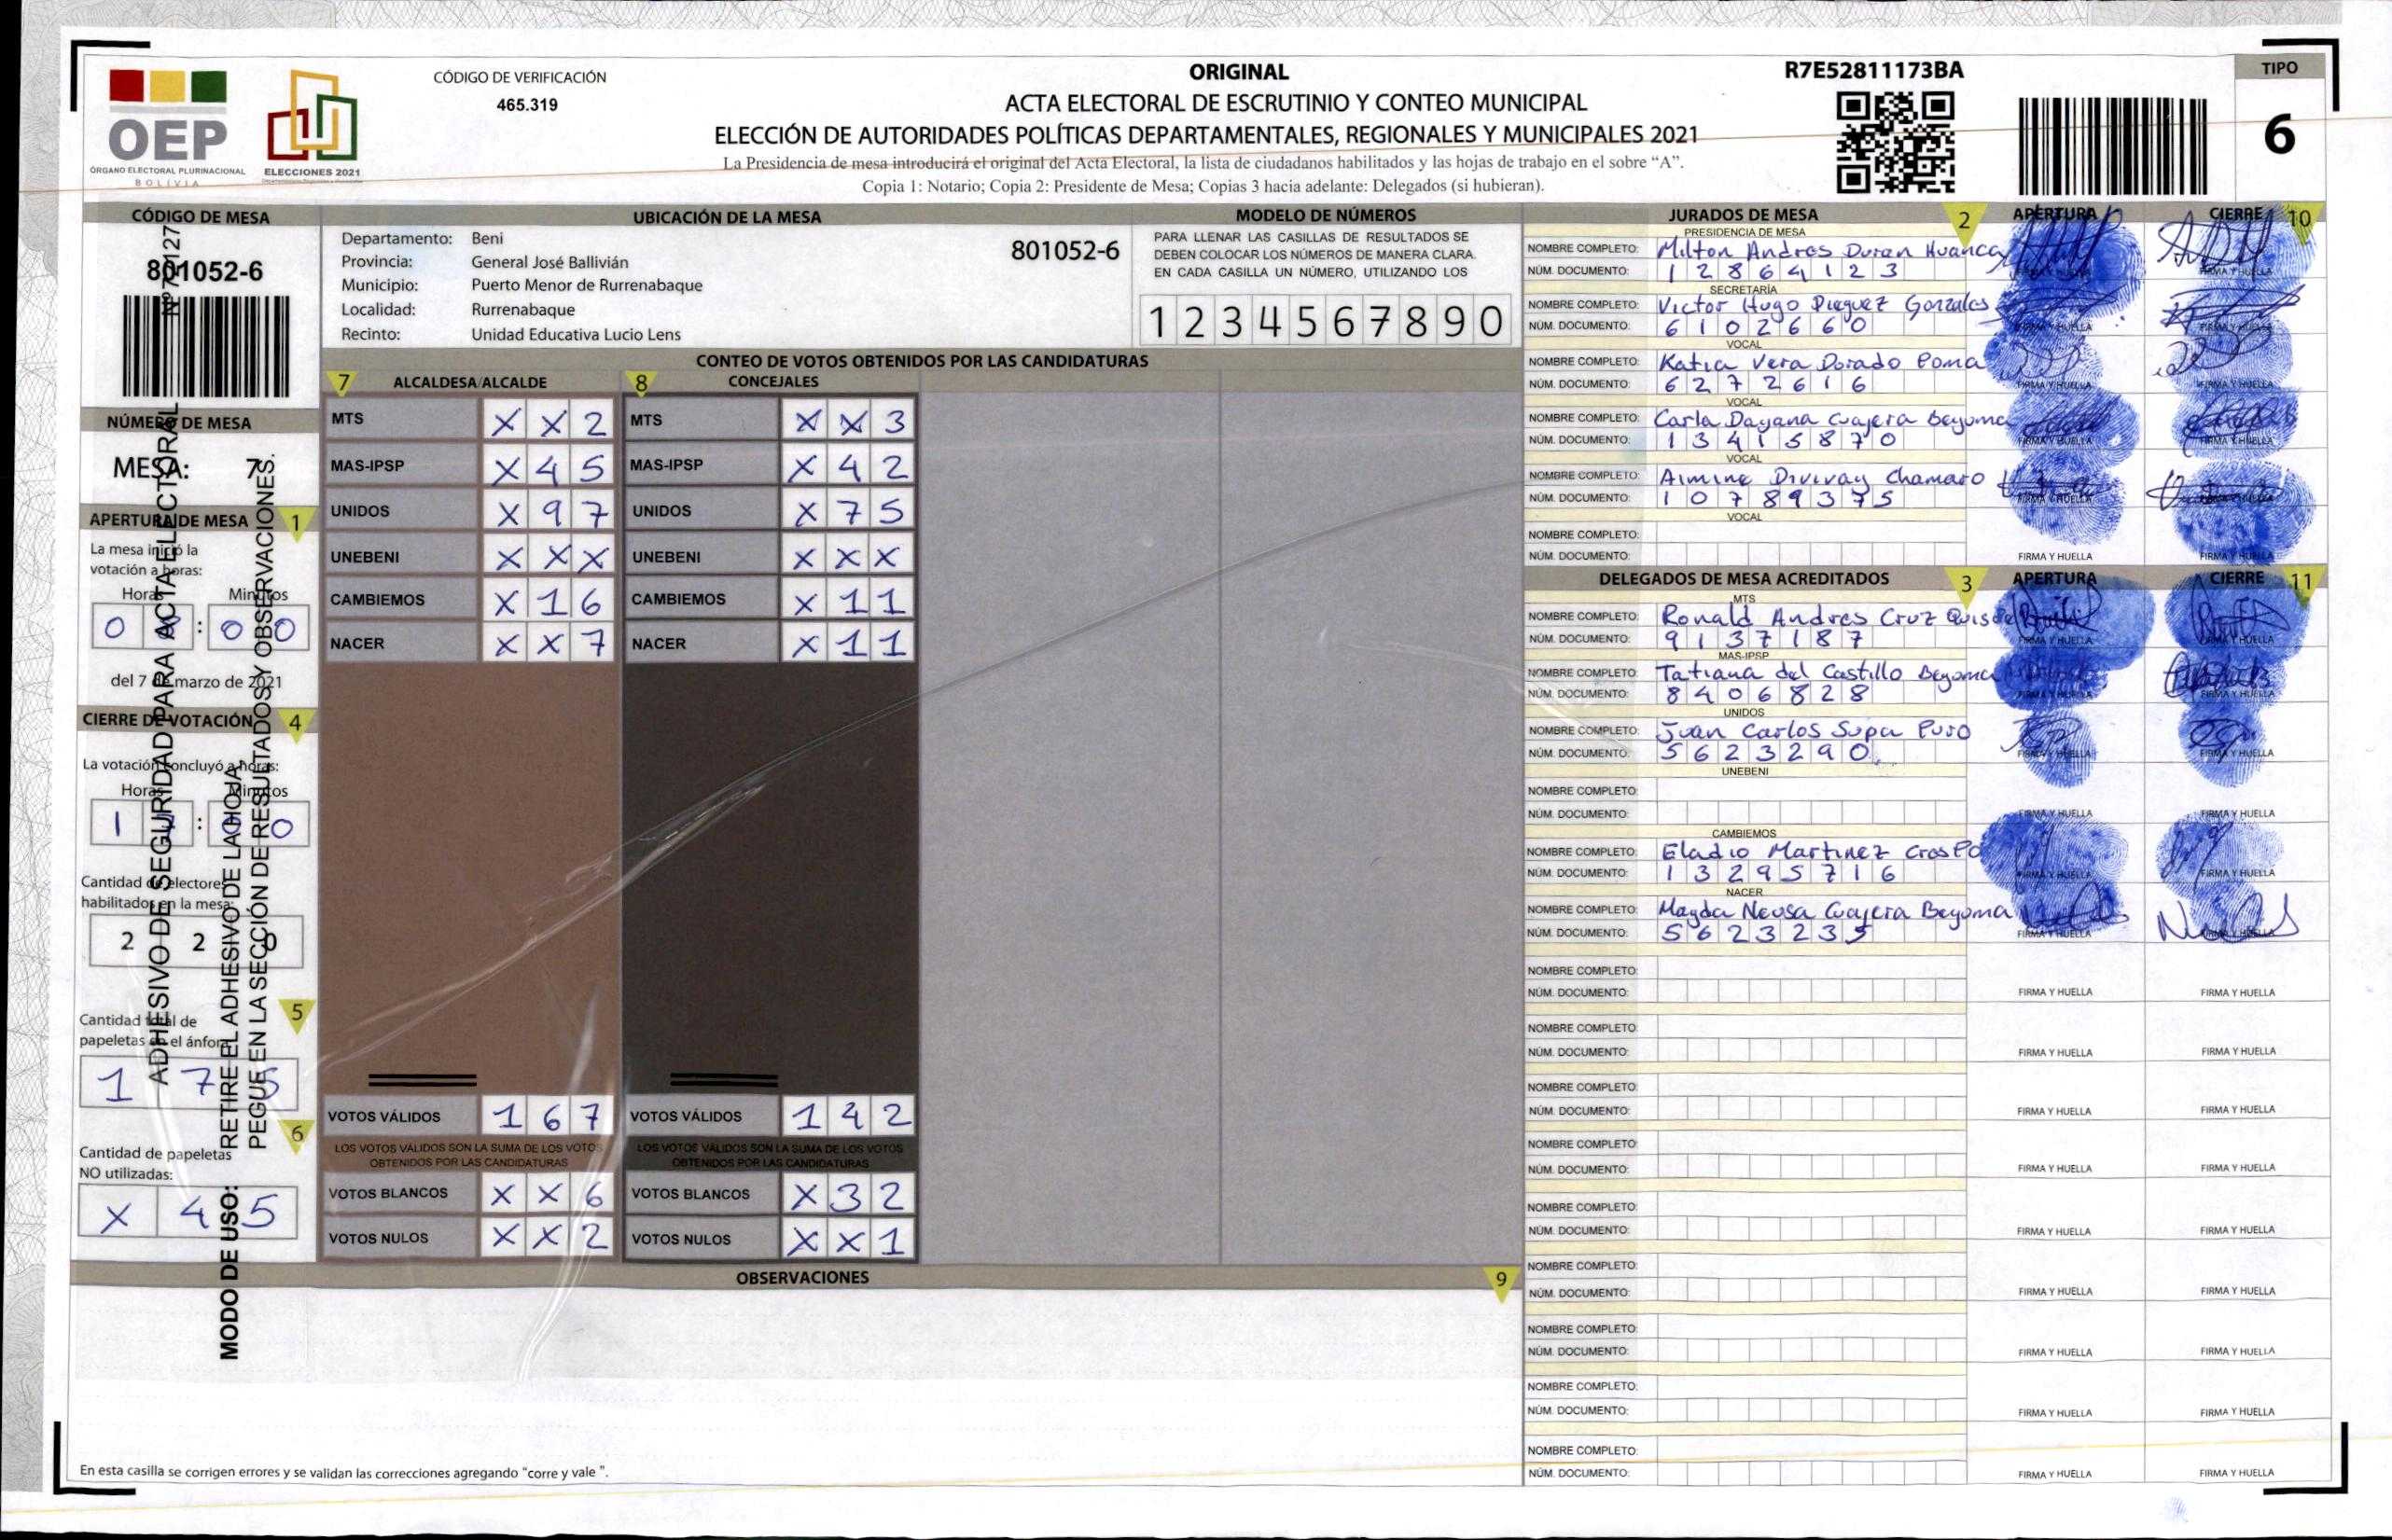 OEP
ÓRGANO ELECTORAL PLURINACIONAL
BOLIVIA
ELECCIONES 2021
CÓDIGO DE VERIFICACIÓN
465.319
ORIGINAL
ACTA ELECTORAL DE ESCRUTINIO Y CONTEO MUNICIPAL
ELECCIÓN DE AUTORIDADES POLÍTICAS DEPARTAMENTALES, REGIONALES Y MUNICIPALES 2021
La Presidencia de mesa introducirá el original del Acta Electoral, la lista de ciudadanos habilitados y las hojas de trabajo en el sobre “A”.
Copia 1: Notario; Copia 2: Presidente de Mesa; Copias 3 hacia adelante: Delegados (si hubieran).
R7E52811173BA
TIPO
6
CÓDIGO DE MESA
801052-6
NÚMERO DE MESA
MESA: 7
APERTURA DE MESA 1
La mesa inició la
votación a horas:
Horas Minutos
: 0 0
del 7 de marzo de 2021
CIERRE DE VOTACIÓN 4
La votación concluyó a horas:
Horas Minutos
1 : 0
Cantidad de electores
habilitados en la mesa:
2 2 0
5
Cantidad total de
papeletas en el ánfora
1 7 5
6
Cantidad de papeletas
NO utilizadas:
X 4 5
ADHESIVO DE SEGURIDAD PARA ACTA ELECTORAL
MODO DE USO: RETIRE EL ADHESIVO DE LA HOJA
PEGUE EN LA SECCIÓN DE RESULTADOS Y OBSERVACIONES.
UBICACIÓN DE LA MESA
Departamento: Beni
Provincia: General José Ballivián
Municipio: Puerto Menor de Rurrenabaque
Localidad: Rurrenabaque
Recinto: Unidad Educativa Lucio Lens
801052-6
MODELO DE NÚMEROS
PARA LLENAR LAS CASILLAS DE RESULTADOS SE
DEBEN COLOCAR LOS NÚMEROS DE MANERA CLARA.
EN CADA CASILLA UN NÚMERO, UTILIZANDO LOS
1 2 3 4 5 6 7 8 9 0
CONTEO DE VOTOS OBTENIDOS POR LAS CANDIDATURAS
7 ALCALDESA/ALCALDE 8 CONCEJALES
MTS X X 2 MTS X X 3
MAS-IPSP X 4 5 MAS-IPSP X 4 2
UNIDOS X 9 7 UNIDOS X 7 5
UNEBENI X X X UNEBENI X X X
CAMBIEMOS X 1 6 CAMBIEMOS X 1 1
NACER X X 7 NACER X 1 1
VOTOS VÁLIDOS 1 6 7 VOTOS VÁLIDOS 1 4 2
LOS VOTOS VÁLIDOS SON LA SUMA DE LOS VOTOS LOS VOTOS VÁLIDOS SON LA SUMA DE LOS VOTOS
OBTENIDOS POR LAS CANDIDATURAS OBTENIDOS POR LAS CANDIDATURAS
VOTOS BLANCOS X X 6 VOTOS BLANCOS X 3 2
VOTOS NULOS X X 2 VOTOS NULOS X X 1
OBSERVACIONES 9
En esta casilla se corrigen errores y se validan las correcciones agregando “corre y vale ”.
JURADOS DE MESA 2 APERTURA CIERRE 10
PRESIDENCIA DE MESA
NOMBRE COMPLETO: Milton Andres Duran Huanca
NÚM. DOCUMENTO: 1 2 8 6 4 1 2 3 FIRMA Y HUELLA
SECRETARÍA
NOMBRE COMPLETO: Victor Hugo Dieguez Gonzales
NÚM. DOCUMENTO: 6 1 0 2 6 6 0 FIRMA Y HUELLA FIRMA Y HUELLA
VOCAL
NOMBRE COMPLETO: Katia Vera Dorado Poma
NÚM. DOCUMENTO: 6 2 7 2 6 1 6 FIRMA Y HUELLA FIRMA Y HUELLA
VOCAL
NOMBRE COMPLETO: Carla Dayana Guajera Beyuma
NÚM. DOCUMENTO: 1 3 4 1 5 8 7 0 FIRMA Y HUELLA FIRMA Y HUELLA
VOCAL
NOMBRE COMPLETO: Chamaro
NÚM. DOCUMENTO: 1 0 7 8 9 3 7 5 FIRMA Y HUELLA
VOCAL
NOMBRE COMPLETO:
NÚM. DOCUMENTO: FIRMA Y HUELLA FIRMA Y HUELLA
DELEGADOS DE MESA ACREDITADOS 3 APERTURA CIERRE 11
MTS
NOMBRE COMPLETO: Ronald Andres Cruz Quispe
NÚM. DOCUMENTO: 9 1 3 7 1 8 7 FIRMA Y HUELLA FIRMA Y HUELLA
MAS-IPSP
NOMBRE COMPLETO: Tatiana del Castillo Beyuma
NÚM. DOCUMENTO: 8 4 0 6 8 2 8 FIRMA Y HUELLA FIRMA Y HUELLA
UNIDOS
NOMBRE COMPLETO: Juan Carlos Supa Puro
NÚM. DOCUMENTO: 5 6 2 3 2 9 0 FIRMA Y HUELLA FIRMA Y HUELLA
UNEBENI
NOMBRE COMPLETO:
NÚM. DOCUMENTO: FIRMA Y HUELLA FIRMA Y HUELLA
CAMBIEMOS
NOMBRE COMPLETO: Eladio Martinez
NÚM. DOCUMENTO: 1 3 2 9 5 7 1 6 FIRMA Y HUELLA FIRMA Y HUELLA
NACER
NOMBRE COMPLETO: Magda Neusa Guajera Beyuma
NÚM. DOCUMENTO: 5 6 2 3 2 3 5 FIRMA Y HUELLA FIRMA Y HUELLA
NOMBRE COMPLETO:
NÚM. DOCUMENTO: FIRMA Y HUELLA FIRMA Y HUELLA
NOMBRE COMPLETO:
NÚM. DOCUMENTO: FIRMA Y HUELLA FIRMA Y HUELLA
NOMBRE COMPLETO:
NÚM. DOCUMENTO: FIRMA Y HUELLA FIRMA Y HUELLA
NOMBRE COMPLETO:
NÚM. DOCUMENTO: FIRMA Y HUELLA FIRMA Y HUELLA
NOMBRE COMPLETO:
NÚM. DOCUMENTO: FIRMA Y HUELLA FIRMA Y HUELLA
NOMBRE COMPLETO:
NÚM. DOCUMENTO: FIRMA Y HUELLA FIRMA Y HUELLA
NOMBRE COMPLETO:
NÚM. DOCUMENTO: FIRMA Y HUELLA FIRMA Y HUELLA
NOMBRE COMPLETO:
NÚM. DOCUMENTO: FIRMA Y HUELLA FIRMA Y HUELLA
NOMBRE COMPLETO:
NÚM. DOCUMENTO: FIRMA Y HUELLA FIRMA Y HUELLA